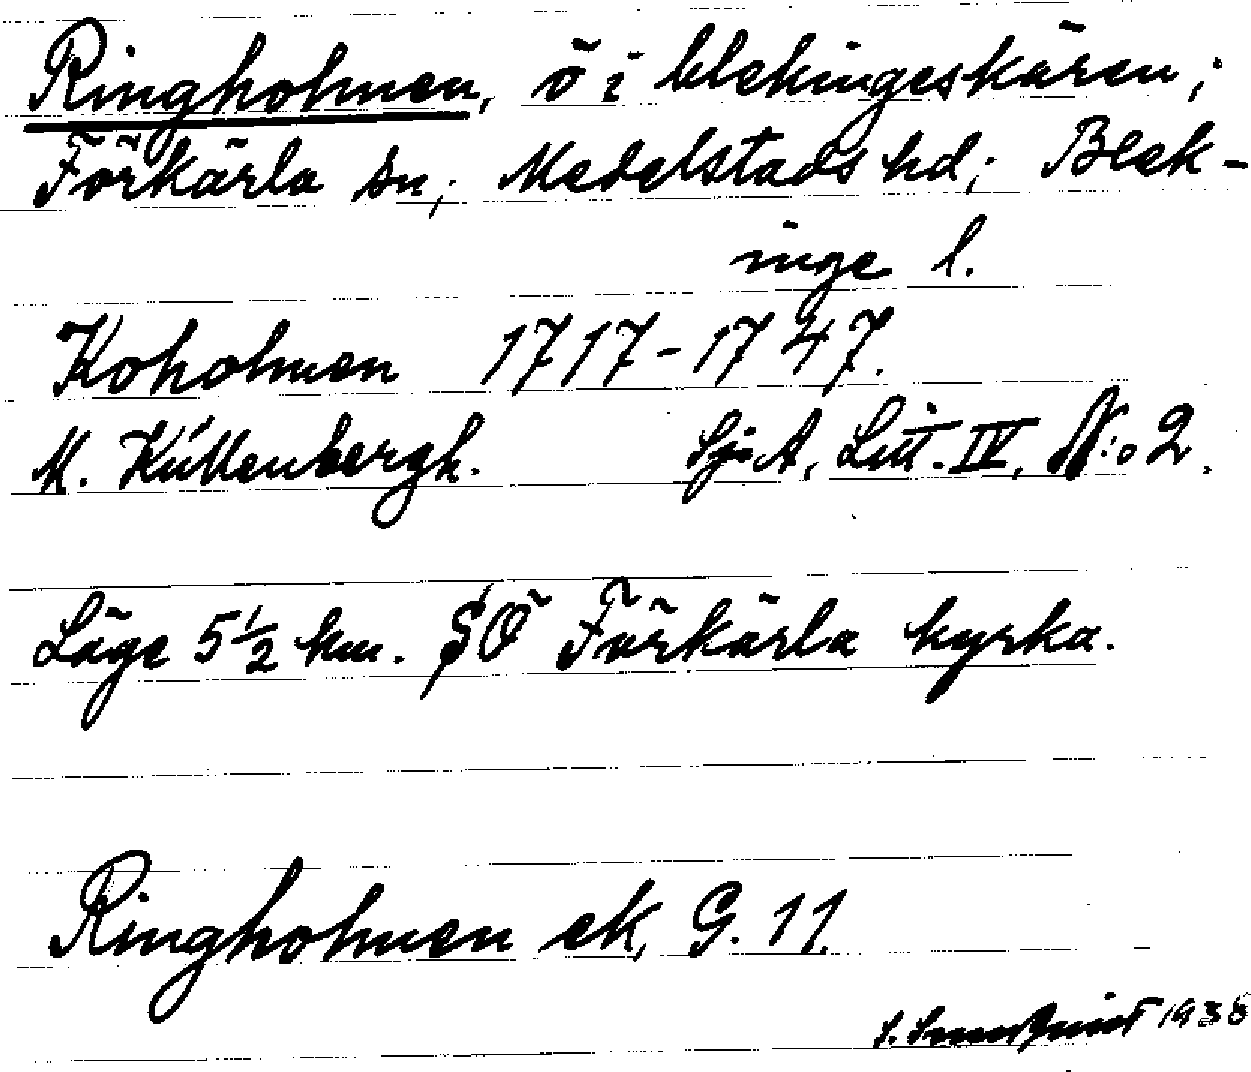 Ringholmen, ö i blekingeskären;
Förkärla sn; Medelstads hd; Blek-
inge l.
Koholmen 1717-1747.
M. Küllenbergh. Sjö A, Litt. IV, N:o 2.
Läge 5 1/2 km. SÖ Förkärla kyrka.
Ringholmen ek, G. 11.
1938